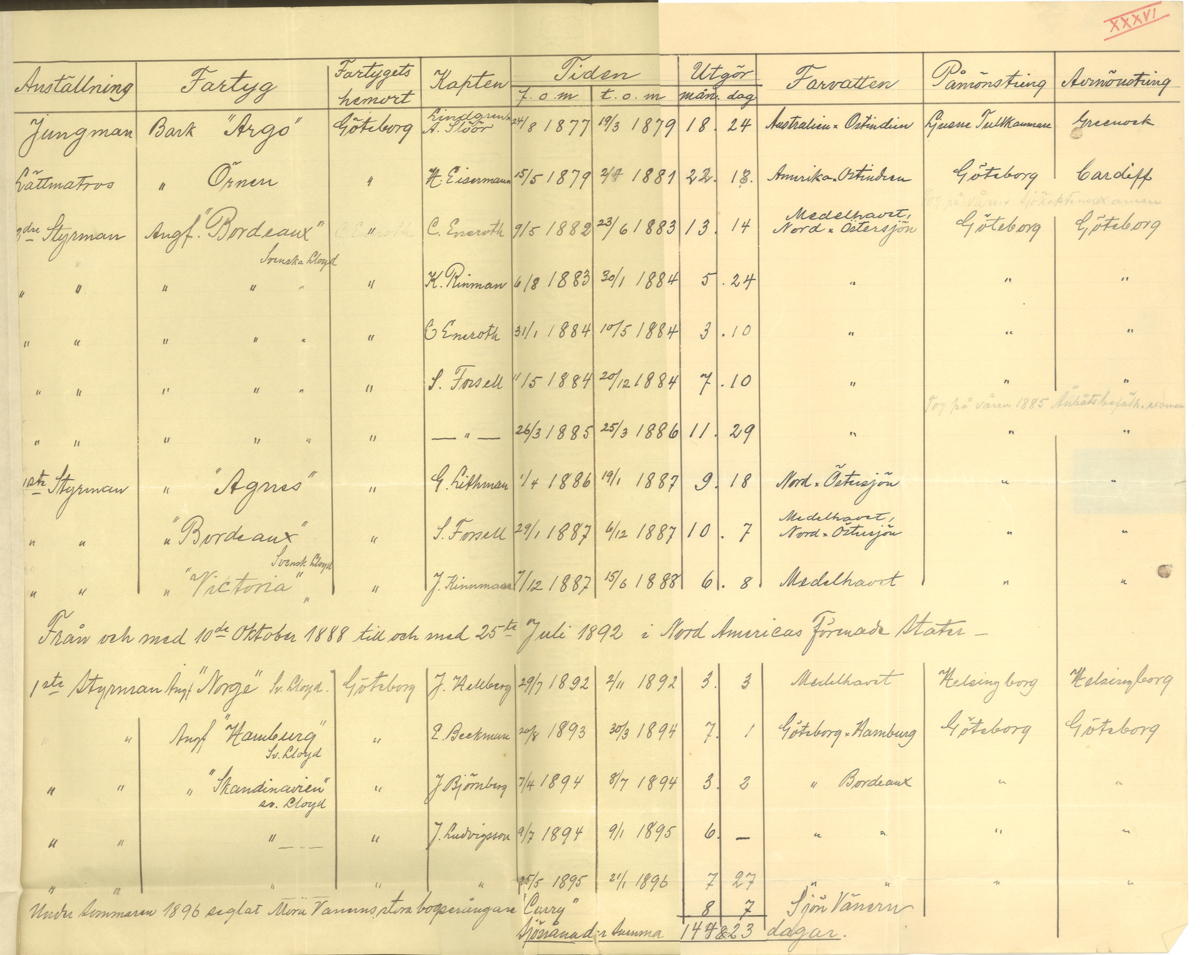 XXXVI
Anställning Fartyg Fartygets hemort Kapten Tiden f. o. m t. o. m Utgör mån. dag Farvatten Påmönstring Avmönstring
Jungman Bark "Argo" Göteborg Lindgren A. Flöör 24/8 1877 19/3 1879 18. 24 Australien * Ostindien Greenock
Lättmatros " Örnen " H. Eisermann 15/5 1879 1881 22. 13. Amerika * Ostindien Göteborg Cardiff
2dre Styrman Angf. "Bordeaux" " C. Eneroth 9/5 1882 23/6 1883 13. 14 Medelhavet, Nord * Östersjön Göteborg Göteborg
Svenska Lloyd
" " " " " " K. Rinman 6/8 1883 30/1 1884 5. 24 " " "
" " " " " " C Eneroth 31/1 1884 10/5 1884 3. 10 " " "
" " " " " " S. Forsell 11/5 1884 20/12 1884 7. 10 " " "
Tog på våren 1885
" " " " " " — " — 26/3 1885 25/3 1886 11. 29 " " "
1ste Styrman " "Agnes" " G. Lithman 1/4 1886 19/1 1887 9. 18 Nord * Östersjön " "
" " " "Bordeaux" " S. Forsell 29/1 1887 6/12 1887 10. 7 Medelhavet, Nord * Östersjön " "
Svensk Lloyd
" " " "Victoria" " " J. Kinnman 7/12 1887 15/6 1888 6. 8 Medelhavet " "
Från och med 10de Oktober 1888 till och med 25te Juli 1892 i Nord Americas Förenade Stater —
1ste Styrman Angf "Norge" Sv. Lloyd. Göteborg J. Hallberg 29/7 1892 2/11 1892 3. 3 Medelhavet Helsingborg Helsingborg
" " Angf "Hamburg" " Beckman 20/8 1893 30/3 1894 7. 1 Göteborg * Hamburg Göteborg Göteborg
Sv. Lloyd
" " " "Skandinavien" " J Björnberg 7/4 1894 8/7 1894 3. 2 " Bordeaux " "
sv. Lloyd
" " " " J. Ludvigsson 9/7 1894 9/1 1895 6. — " " " "
" " " " " 25/5 1895 21/1 1896 7 27 " " " "
Under sommaren 1896 seglat Vänerns stora bogserångare "Curry" 8 7 Sjön Vänern
Sjömånader summa 144 & 23 dagar.